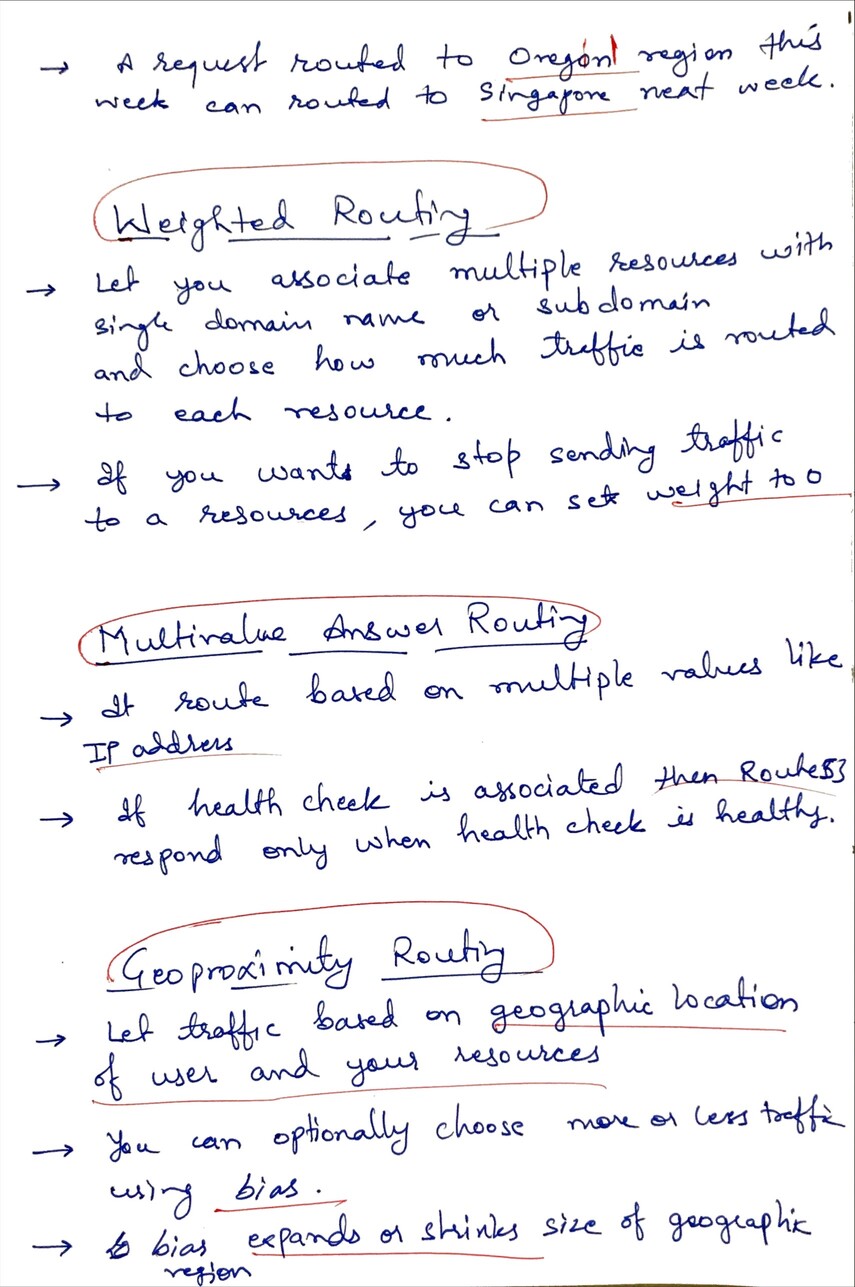 → A request routed to Oregon region this
week can routed to Singapore neat week.
Weighted Routing
→ Let you associate multiple resources with
single domain name or subdomain
and choose how much traffic is routed
to each resource.
→ If you wants to stop sending traffic
to a resources, you can set weight to 0
Multivalue Answer Routing
→ It route based on multiple values like
IP address
→ If health check is associated then Route53
respond only when health check is healthy.
Geoproximity Routing
→ Let traffic based on geographic location
of user and your resources
→ You can optionally choose more or less traffic
using bias.
→ bias expands or shrinks size of geographic
region